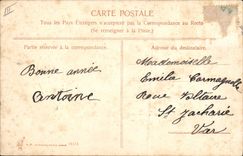 CARTE POSTALE
Tous les Pays Étrangers n'acceptent pas la Correspondance au Recto
(Se renseigner à la Poste).
Partie réservée à la correspondance.
Adresse du destinataire.
Bonne année
Antoine
Mademoiselle
Emilia
Rue Voltaire
St Zacharie
Var